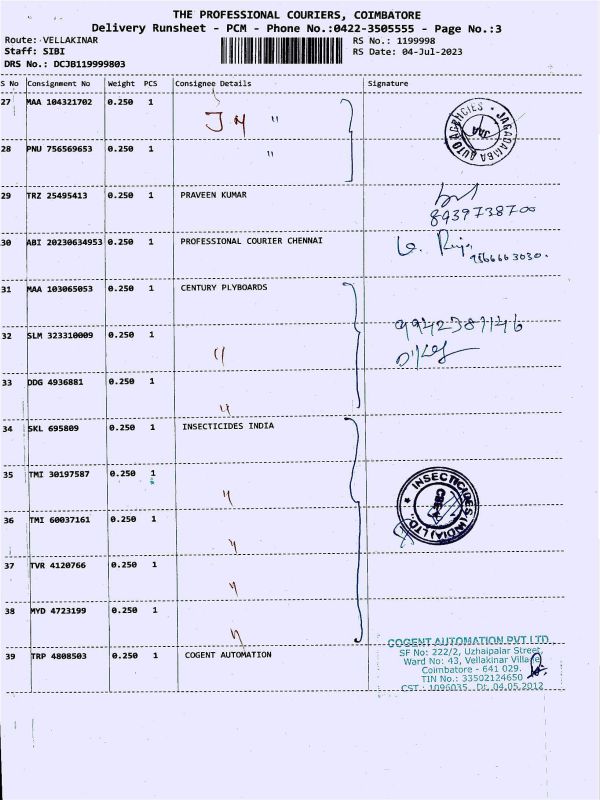 THE PROFESSIONAL COURIERS, COIMBATORE
Delivery Runsheet - PCM - Phone No.:0422-3505555 - Page No.:3
Route: VELLAKINAR RS No.: 1199998
Staff: SIBI RS Date: 04-Jul-2023
DRS No.: DCJB119999803
S No Consignment No Weight PCS Consignee Details Signature
27 MAA 104321702 0.250 1 J M "
JAGADAMBA AUTO AGENCIES
JAA
28 PNU 756569653 0.250 1 "
29 TRZ 25495413 0.250 1 PRAVEEN KUMAR
8939738700
30 ABI 20230634953 0.250 1 PROFESSIONAL COURIER CHENNAI
31 MAA 103065053 0.250 1 CENTURY PLYBOARDS
32 SLM 323310009 0.250 1 "
33 DDG 4936881 0.250 1 "
34 SKL 695809 0.250 1 INSECTICIDES INDIA
35 TMI 30197587 0.250 1 "
INSECTICIDES (INDIA) LTD.
36 TMI 60037161 0.250 1 "
37 TVR 4120766 0.250 1 "
38 MYD 4723199 0.250 1 "
39 TRP 4808503 0.250 1 COGENT AUTOMATION
COGENT AUTOMATION PVT LTD
SF No: 222/2, Uzhaipalar Street,
Ward No: 43, Vellakinar Village
Coimbatore - 641 029.
TIN No.: 33502124650
CST : 1096035 Dt. 04.05.2012